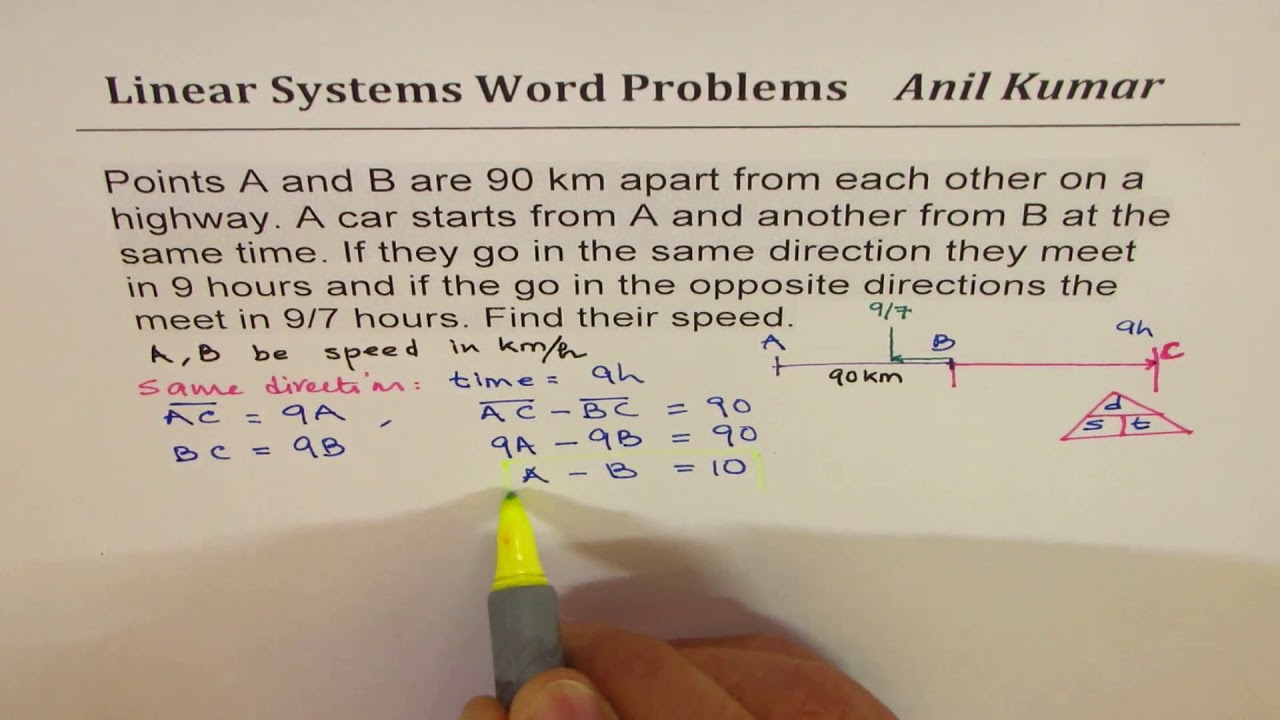 Linear Systems Word Problems Anil Kumar
Points A and B are 90 km apart from each other on a
highway. A car starts from A and another from B at the
same time. If they go in the same direction they meet
in 9 hours and if the go in the opposite directions the
meet in 9/7 hours. Find their speed.
9/7
9h
A B C
90km
A, B be speed in km/h
same direction: time = 9h
d
s t
AC = 9A , AC - BC = 90
BC = 9B 9A - 9B = 90
A - B = 10